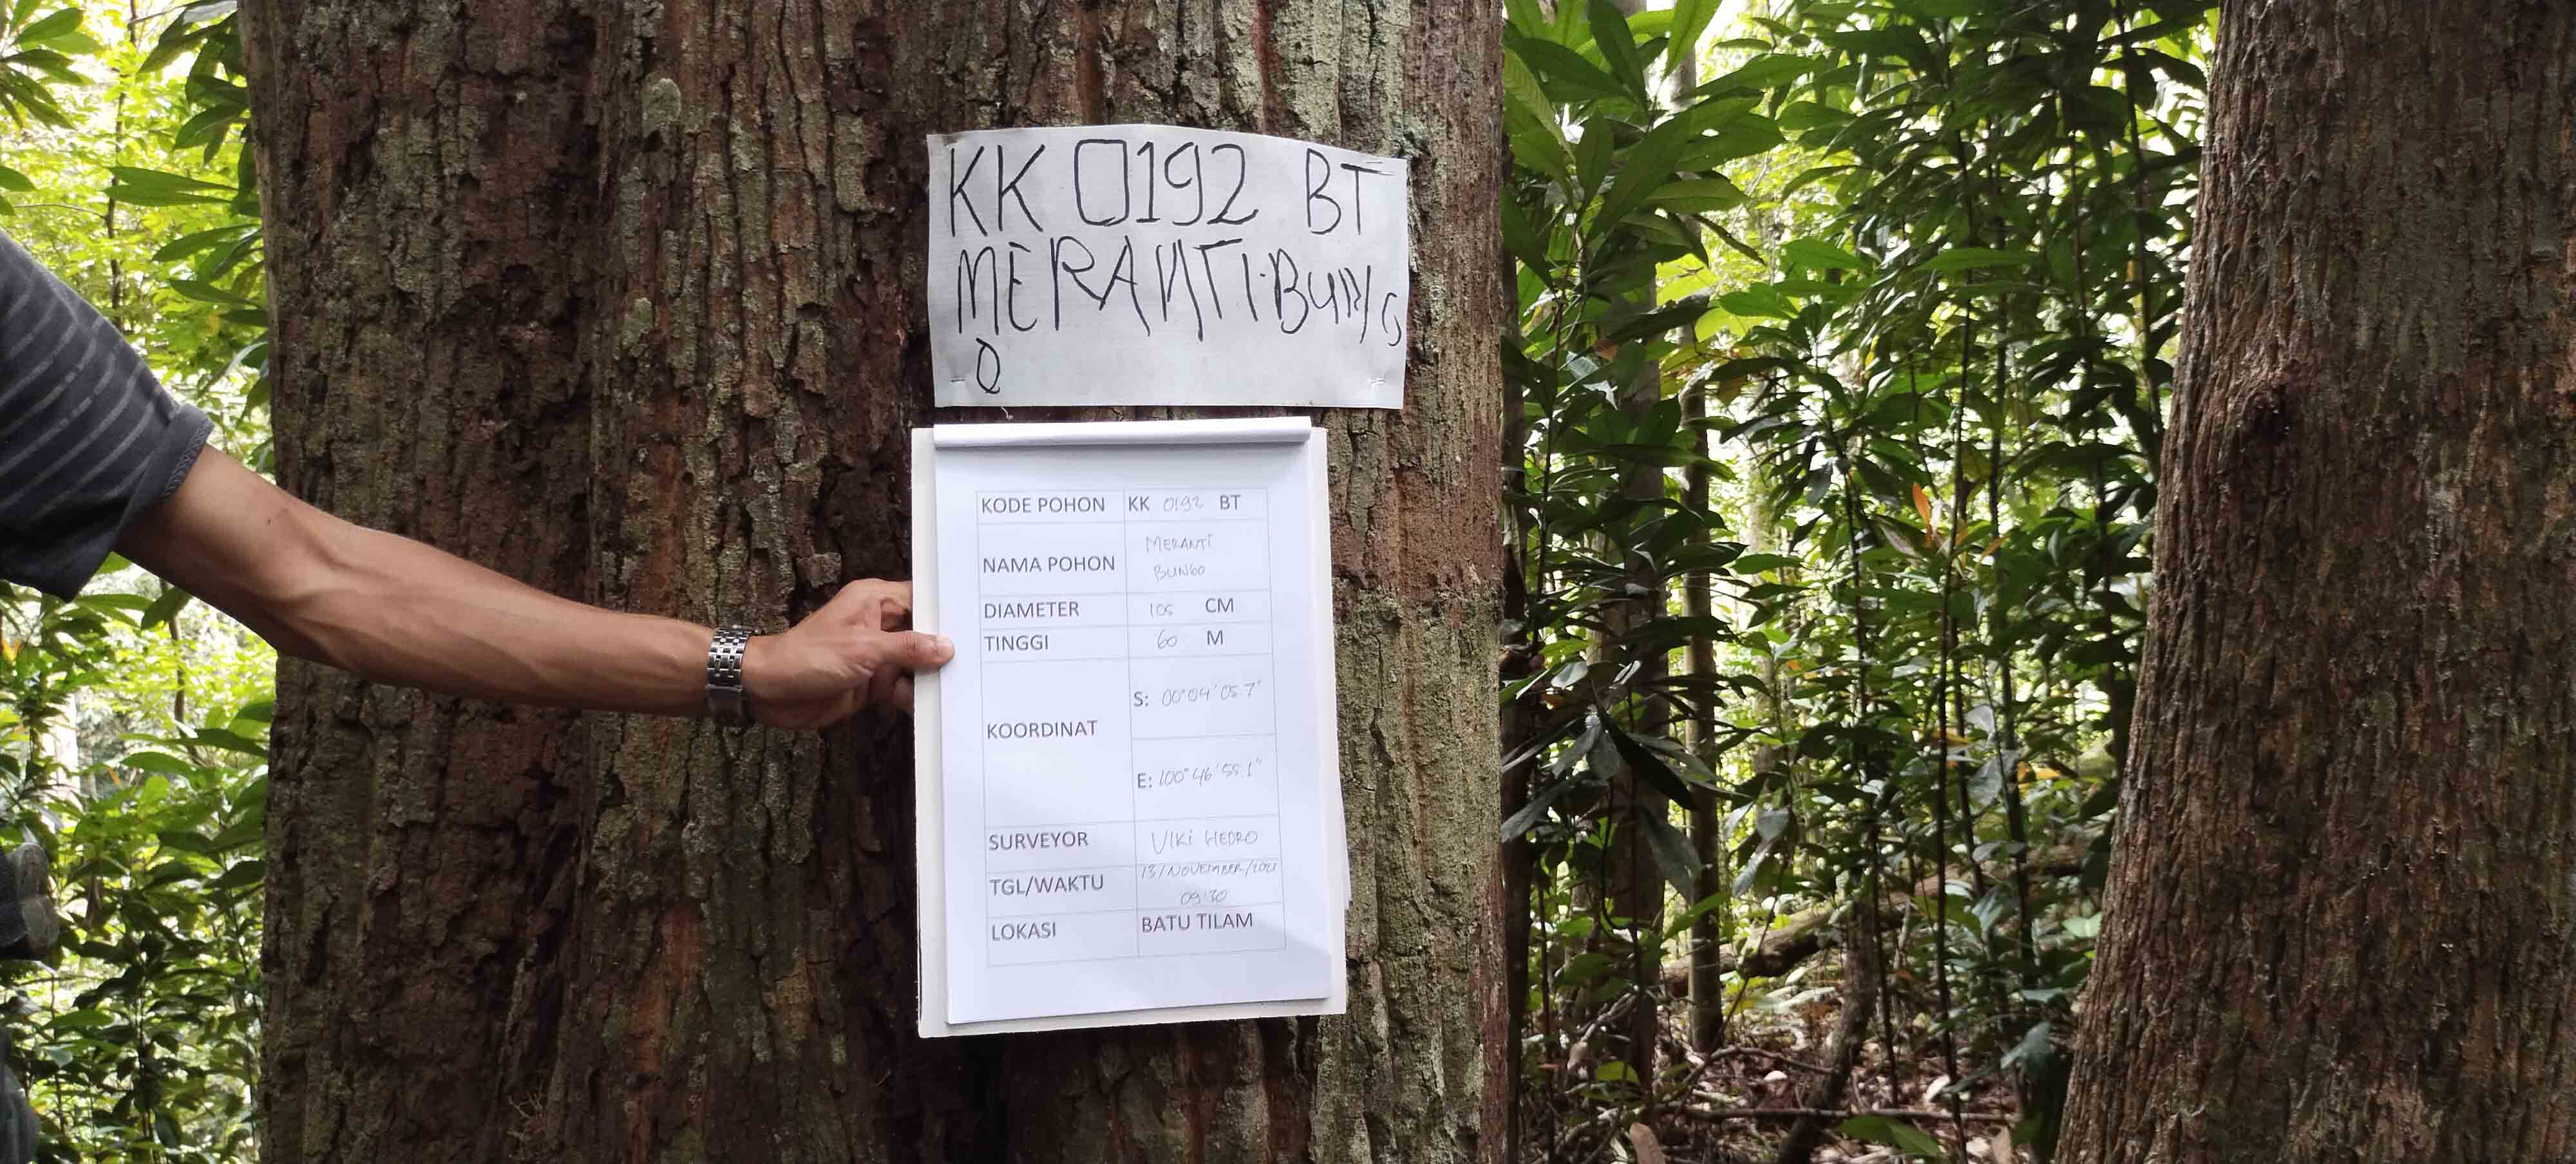 KK 0192 BT
MERANTI·BUNG
O
KODE POHON KK 0192 BT
NAMA POHON MERANTI
BUNGO
DIAMETER 105 CM
TINGGI 60 M
KOORDINAT
S: 00°04'05 7"
E: 100°46'55.1"
SURVEYOR VIKI HEDRO
TGL/WAKTU 13/NOVEMBER/2021
09:30
LOKASI BATU TILAM